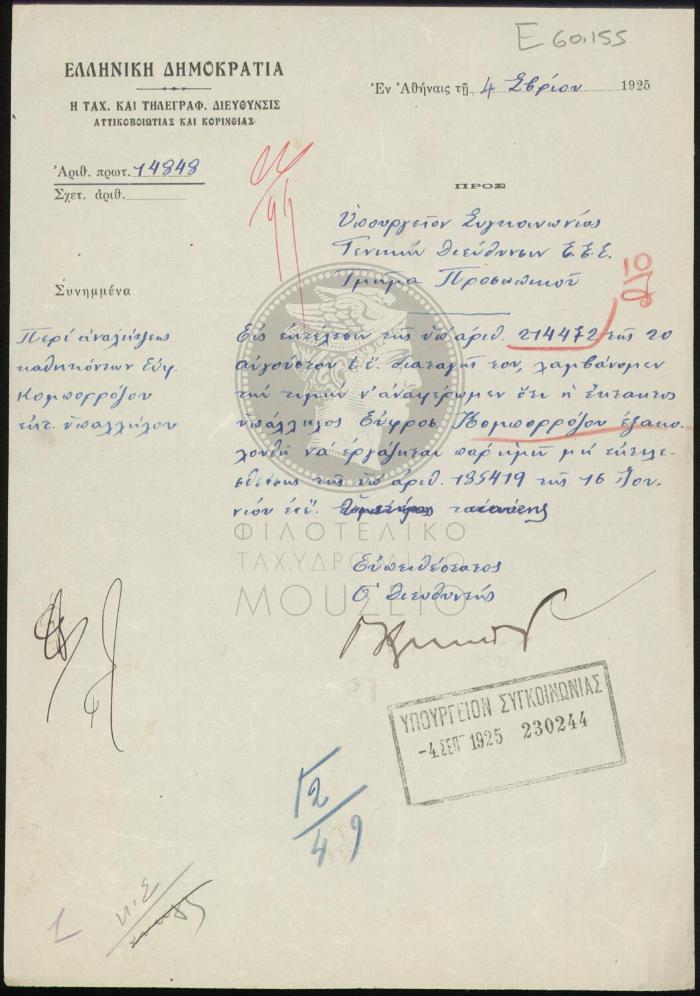 Ε 60.155
ΕΛΛΗΝΙΚΗ ΔΗΜΟΚΡΑΤΙΑ
Η ΤΑΧ. ΚΑΙ ΤΗΛΕΓΡΑΦ. ΔΙΕΥΘΥΝΣΙΣ
ΑΤΤΙΚΟΒΟΙΩΤΙΑΣ ΚΑΙ ΚΟΡΙΝΘΙΑΣ
Ἐν Ἀθήναις τῇ 4 7βρίου 1925
Ἀριθ. πρωτ. 14848
Σχετ. ἀριθ.
ΠΡΟΣ
Ὑπουργεῖον Συγκοινωνίας
Γενικὴν Διεύθυνσιν Τ.Τ.Τ.
Τμῆμα Προσωπικοῦ
2/10
Συνημμένα
Περὶ ἀναλήψεως
καθηκόντων Εὐφ.
Κομπορρόζου
ἐκτ. ὑπαλλήλου
Εἰς ἐκτέλεσιν τῆς ὑπ' ἀριθ. 214472 τῆς 20
αὐγούστου ἐ.ἔ. διαταγῆς του, λαμβάνομεν
τὴν τιμὴν ν' ἀναφέρωμεν ὅτι ἡ ἔκτακτος
ὑπάλληλος Εὐφροσ. Κομπορρόζου ἐξακο-
λουθῇ νὰ ἐργάζηται παρ' ἡμῖν μὴ ἐκτελε-
σθείσης τῆς ὑπ' ἀριθ. 135419 τῆς 16 Ἰου-
νίου ἐ.ἔ.
Εὐπειθέστατος
Ὁ Διευθυντής
ΦΙΛΟΤΕΛΙΚΟ
ΤΑΧΥΔΡΟΜΙΚΟ
ΜΟΥΣΕΙΟ
ΥΠΟΥΡΓΕΙΟΝ ΣΥΓΚΟΙΝΩΝΙΑΣ
-4 ΣΕΠ 1925 230244
12
4 9
1